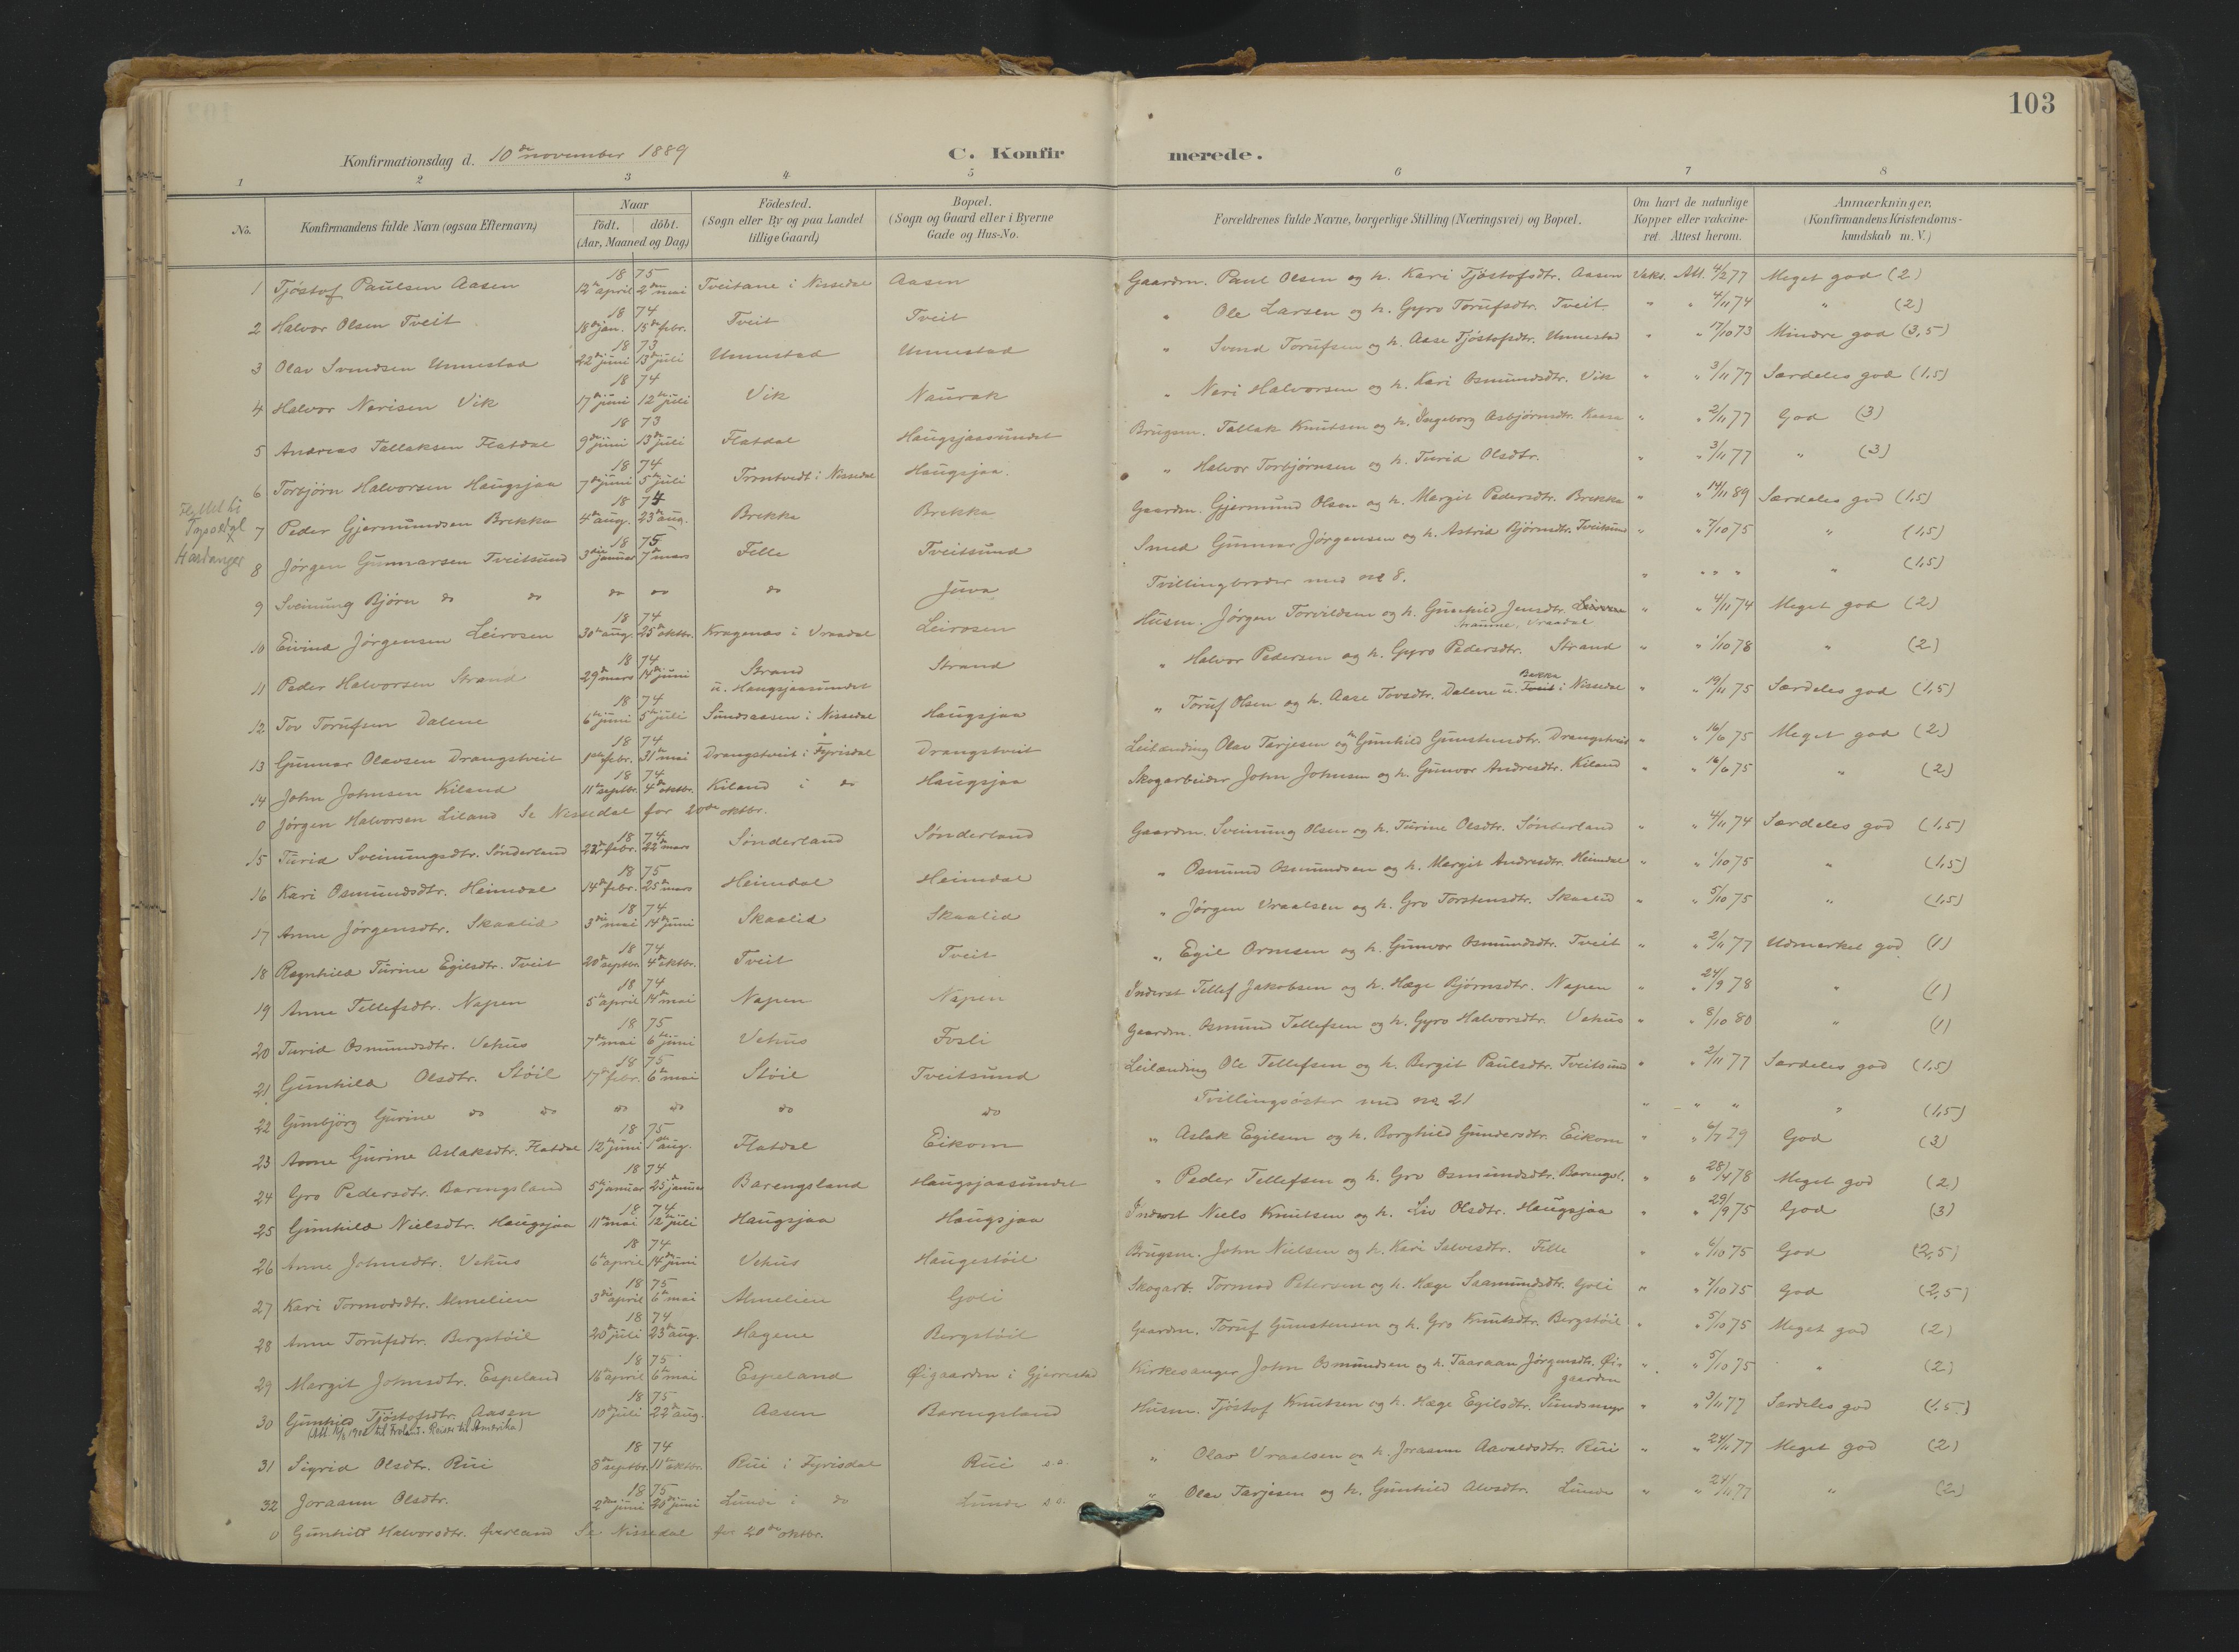 103
Konfirmationsdag d. 10de november 1889 C. Konfirmerede.
1 2 3 4 5 6 7 8
No. Konfirmandens fulde Navn (ogsaa Efternavn) Naar født. døbt. (Aar, Maaned og Dag) Födested. (Sogn eller By og paa Landet tillige Gaard) Bopæl. (Sogn og Gaard eller i Byerne Gade og Hus-No. Forældrenes fulde Navne, borgerlige Stilling (Næringsvei) og Bopæl. Om havt de naturlige Kopper eller vakcineret. Attest herom. Anmærkninger. (Konfirmandens Kristendomskundskab m. V.)
1 Tjöstof Paulsen Aasen 18 75 12te april 2den mai Tveitane i Nissedal Aasen Gaardm. Paul Olsen og h. Kari Tjöstofsdtr. Aasen Vaks. Att. 4/2 77 Meget god (2)
2 Halvor Olsen Tveit 18 74 18de jan. 15de febr. Tveit Tveit " Ole Larsen og h. Gyro Torufsdtr. Tveit " " 4/11 74 " (2)
3 Olav Svendsen Unnestad 18 73 22de juni 13de juli Unnestad Unnestad " Svend Torufsen og h. Aase Tjöstofsdtr. Unnestad " " 17/10 73 Mindre god (3,5)
4 Halvor Nerisen Vik 18 74 17de juni 12te juli Vik Naurak " Neri Halvorsen og h. Kari Osmundsdtr. Vik " " 3/11 77 Særdeles god (1,5)
5 Andreas Tallaksen Flatdal 18 73 9de juni 13de juli Flatdal Haugsjaasundet Brugsm. Tallak Knutsen og h. Ingeborg Asbjørnsdtr. Kaasa " " 2/11 77 God (3)
6 Torbjörn Halvorsen Haugsjaa 18 74 7de juni 5te juli Trontvedt i Nissedal Haugsjaa. " Halvor Torbjørnsen og h. Turid Olsdtr. " " 3/11 77 " (3)
Flyttet til Tyssedal Hardanger
7 Peder Gjermundsen Brekka 18 74 4de aug. 23de aug. Brekka Brekka Gaardm. Gjermund Olsen og h. Margit Pedersdtr. Brekka " " 14/11 89 Særdeles god (1,5)
8 Jörgen Gunnarsen Tveitsund 18 75 3die januar 7de mars Felle Tveitsund Smed Gunnar Jörgensen og h. Astrid Björnsdtr. Tveitsund " " 7/10 75 " (1,5)
9 Sveinung Björn do do do do do Juva Tvillingbroder med no 8. " " " " " (1,5)
10 Eivind Jörgensen Leirosen 18 74 30te aug. 25de oktbr. Kragenæs i Vraadal Leirosen Husm. Jörgen Torvildsen og h. Gunhild Jensdtr. Straume, Vraadal " " 4/11 74 Meget god (2)
11 Peder Halvorsen Strand 18 74 29de mars 14de juni Strand u. Haugsjaasundet Strand " Halvor Pedersen og h. Gyro Pedersdtr. Strand " " 1/10 78 " (2)
12 Tov Torufsen Dalene 18 74 6te juni 5te juli Sundsaasen i Nissedal Haugsjaa " Toruf Olsen og h. Aase Tovsdtr. Dalene u. Tveit Bakka i Nissedal " " 19/11 75 Særdeles god (1,5)
13 Gunnar Olavsen Drangstveit 18 74 1ste febr. 31te mai Drangstveit i Fyrisdal Drangstveit Leilænding Olav Tarjesen og h. Gunhild Gunstendtr. Drangstveit " " 16/6 75 Meget god (2)
14 John Johnsen Kiland 18 74 11te septbr. 4de oktbr. Kiland i do Haugsjaa Skogarbeider John Johnsen og h. Gunvor Andresdtr. Kiland " " 16/6 75 " (2)
0 Jörgen Halvorsen Liland Se Nissedal for 20de oktbr.
15 Turid Sveinungsdtr. Sönderland 18 74 22de febr. 22de mars Sönderland Sönderland Gaardm. Sveinung Olsen og h. Turine Olsdtr. Sönderland " " 4/11 74 Særdeles god (1,5)
16 Kari Osmundsdtr. Heimdal 18 75 14de febr. 25de mars Heimdal Heimdal " Osmund Osmundsen og h. Margit Andresdtr. Heimdal " " 1/10 75 " (1,5)
17 Anne Jörgensdtr. Skaalid 18 74 3die mai 14de juni Skaalid Skaalid " Jörgen Vraalsen og h. Gro Torstensdtr. Skaalid " " 5/10 75 " (1,5)
18 Ragnhild Turine Egilsdtr. Tveit 18 74 20de septbr. 4de oktbr. Tveit Tveit " Egil Ornssen og h. Gunvor Osmundsdtr. Tveit " " 2/11 77 Udmærket god (1)
19 Anne Tellefsdtr. Napen 18 74 5te april 14de mai Napen Napen Inderst Tellef Jakobsen og h. Hæge Björnsdtr. Napen " " 24/9 78 " (1)
20 Turid Osmundsdtr. Vehus 18 75 7de mai 6te juni Vehus Fosli Gaardm. Osmund Tellefsen og h. Gyro Halvorsdtr. Vehus " " 8/10 80 " (1)
21 Gunhild Olsdtr. Stöil 18 75 17de febr. 6te mai Stöil Tveitsund Leilænding Ole Tellefsen og h. Bergit Paulsdtr. Tveitsund " " 2/11 77 Særdeles god (1,5)
22 Gunbjörg Gurine do do do do do do Tvillingsöster med no 21 " " " " (1,5)
23 Anne Gurine Aslaksdtr. Flatdal 18 75 12te juni 1ste aug. Flatdal Eikom " Aslak Egilsen og h. Borghild Gundersdtr. Eikom " " 6/7 79 God (3)
24 Gro Pedersdtr. Barengsland 18 74 5te januar 25de januar Barengsland Haugsjaasundet " Peder Tellefsen og h. Gro Osmundsdtr. Barengsl. " " 28/4 78 Meget god (2)
25 Gunhild Nielsdtr. Haugsjaa 18 74 11te mai 12te juli Haugsjaa Haugsjaa Inderst Niels Knutsen og h. Liv Olsdtr. Haugsjaa " " 29/9 75 God (3)
26 Anne Johnsdtr. Vehus 18 74 6te april 14de juni Vehus Haugestöil Brugsm. John Nielsen og h. Kari Salvesdtr. Felle " " 6/10 75 God (2,5)
27 Kari Tormodsdtr. Almelien 18 75 3die april 6te mai Almelien Goli Skogarb. Tormod Petersen og h. Hæge Saamundsdtr. Goli " " 7/10 75 God (2,5)
28 Anne Torufsdtr. Bergstöil 18 74 20de juli 23de aug. Hagene Bergstöil Gaardm. Toruf Gunstensen og h. Gro Knutsdtr. Bergstöil " " 5/10 75 Meget god (2)
29 Margit Johnsdtr. Espeland 18 75 16te april 6te mai Espeland Øigaarden i Gjerrestad Kirkesanger John Osmundsen og h. Taaraan Jörgensdtr. Øigaarden " " 5/10 75 " (2)
30 Gunhild Tjöstofsdtr. Aasen 18 75 10de juli 22de aug. Aasen Barengsland Husm. Tjöstof Knutsen og h. Hæge Egilsdtr. Sundsmyr " " 3/11 77 Særdeles god (1,5)
(Att. 1902 til Froland. Reiser til Amerika)
31 Sigrid Olsdtr. Rui 18 74 8de septbr. 11te oktbr. Rui i Fyrisdal Rui s.s. " Olav Vraalsen og h. Joraann Aavaldsdtr. Rui " " 24/11 77 Meget god (2)
32 Joraann Olsdtr. 18 75 2den juni 20de juni Lunde i do Lunde s.s. " Olav Tarjesen og h. Gunhild Alvsdtr. Lunde " " 24/11 77 " (2)
0 Gunhild Halvorsdtr. Øverland Se Nissedal for 20de oktbr.